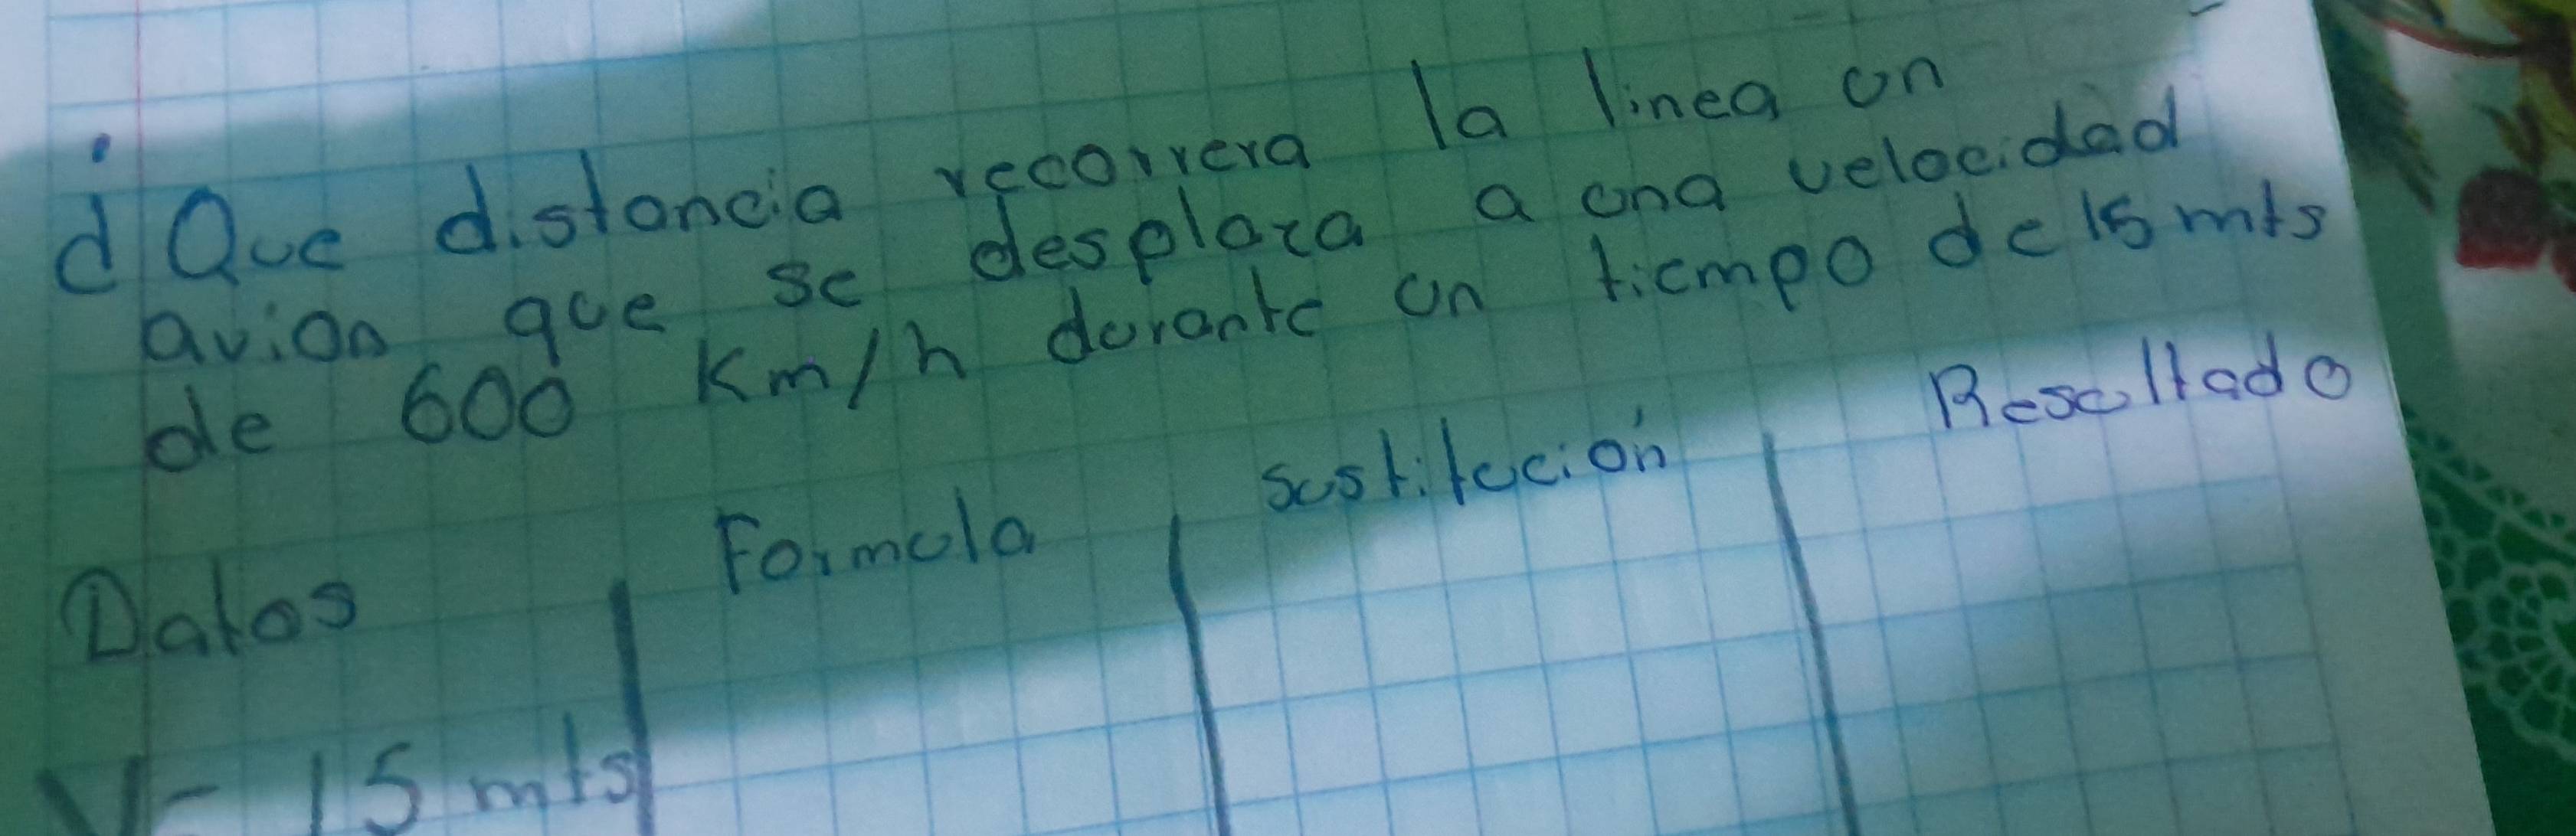 ¿Que distancia recorrera la linea un
avion que se desplaza a una velocidad
de 600 Km/h durante un tiempo de 15 mts
Datos Formula sustitución Resultado
V= 15 mts